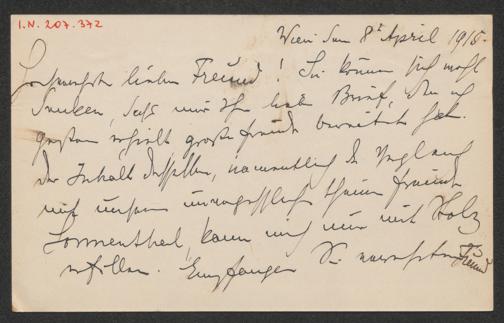 I.N. 207.372
Wien den 8t April 1915.
lieber Freund! Sie können sich wohl
denken, daß mir Ihr lieber Brief, den ich
gestern erhielt große Freude bereitet hat.
Der Inhalt desselben, namentlich der Vergleich
mit unserem unvergeßlich theuren Freunde
Sonnenthal, kann mich nur mit Stolz
erfüllen. Empfangen Sie
Freund